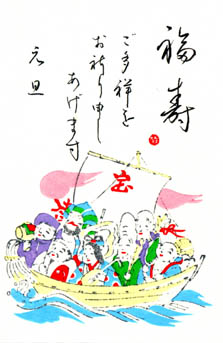 福寿
ご多祥を
お祈り申し
あげます
元旦
宝